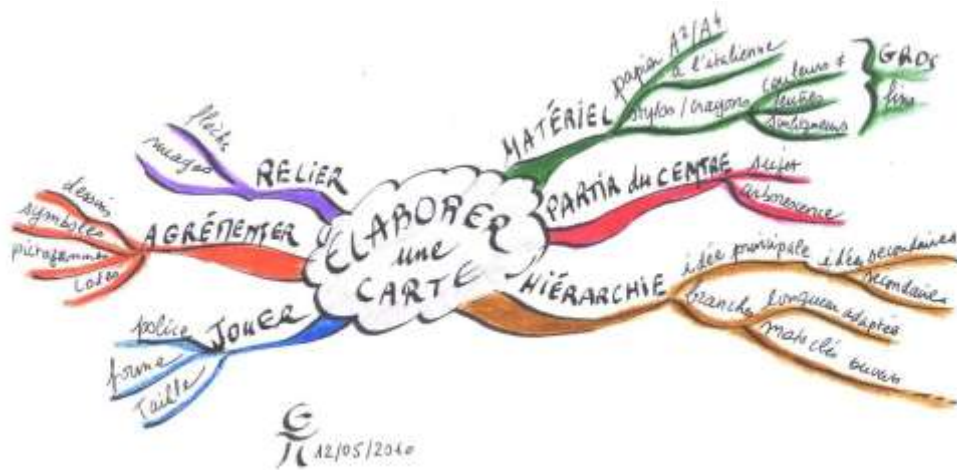 ELABORER
une
CARTE
MATÉRIEL
papier A2/A4
à l'italienne
stylos/crayons
couleurs +
feutres
surligneurs
GROS
fins
PARTIR du CENTRE
sujet
arborescence
HIÉRARCHIE
idée principale
idées secondaires
secondaires
branches
longueur adaptée
mots clés
RELIER
flèche
nuages
AGRÉMENTER
dessins
symboles
pictogrammes
codes
JOUER
police
forme
Taille
12/05/2010